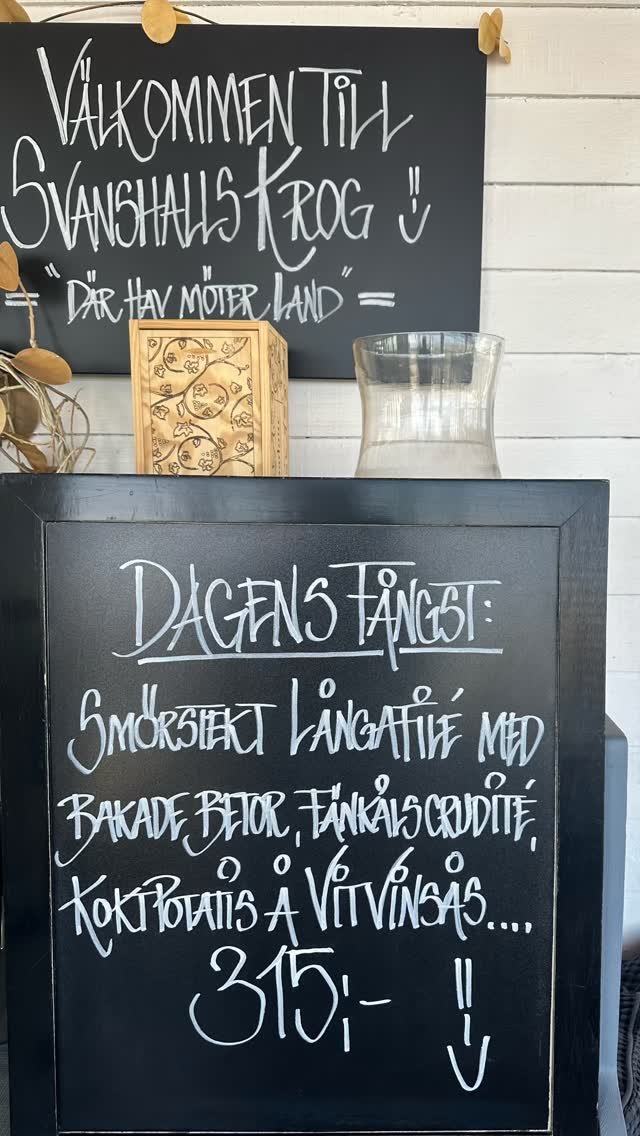 VÄLKOMMEN TILL
SVANSHALLS KROG
= "DÄR HAV MÖTER LAND" =
DAGENS FÅNGST:
SMÖRSTEKT LÅNGAFILÉ MED
BAKADE BETOR, FÄNKÅLSCRUDITÉ,
KOKTPOTATIS Å VITVINSÅS....
315;-